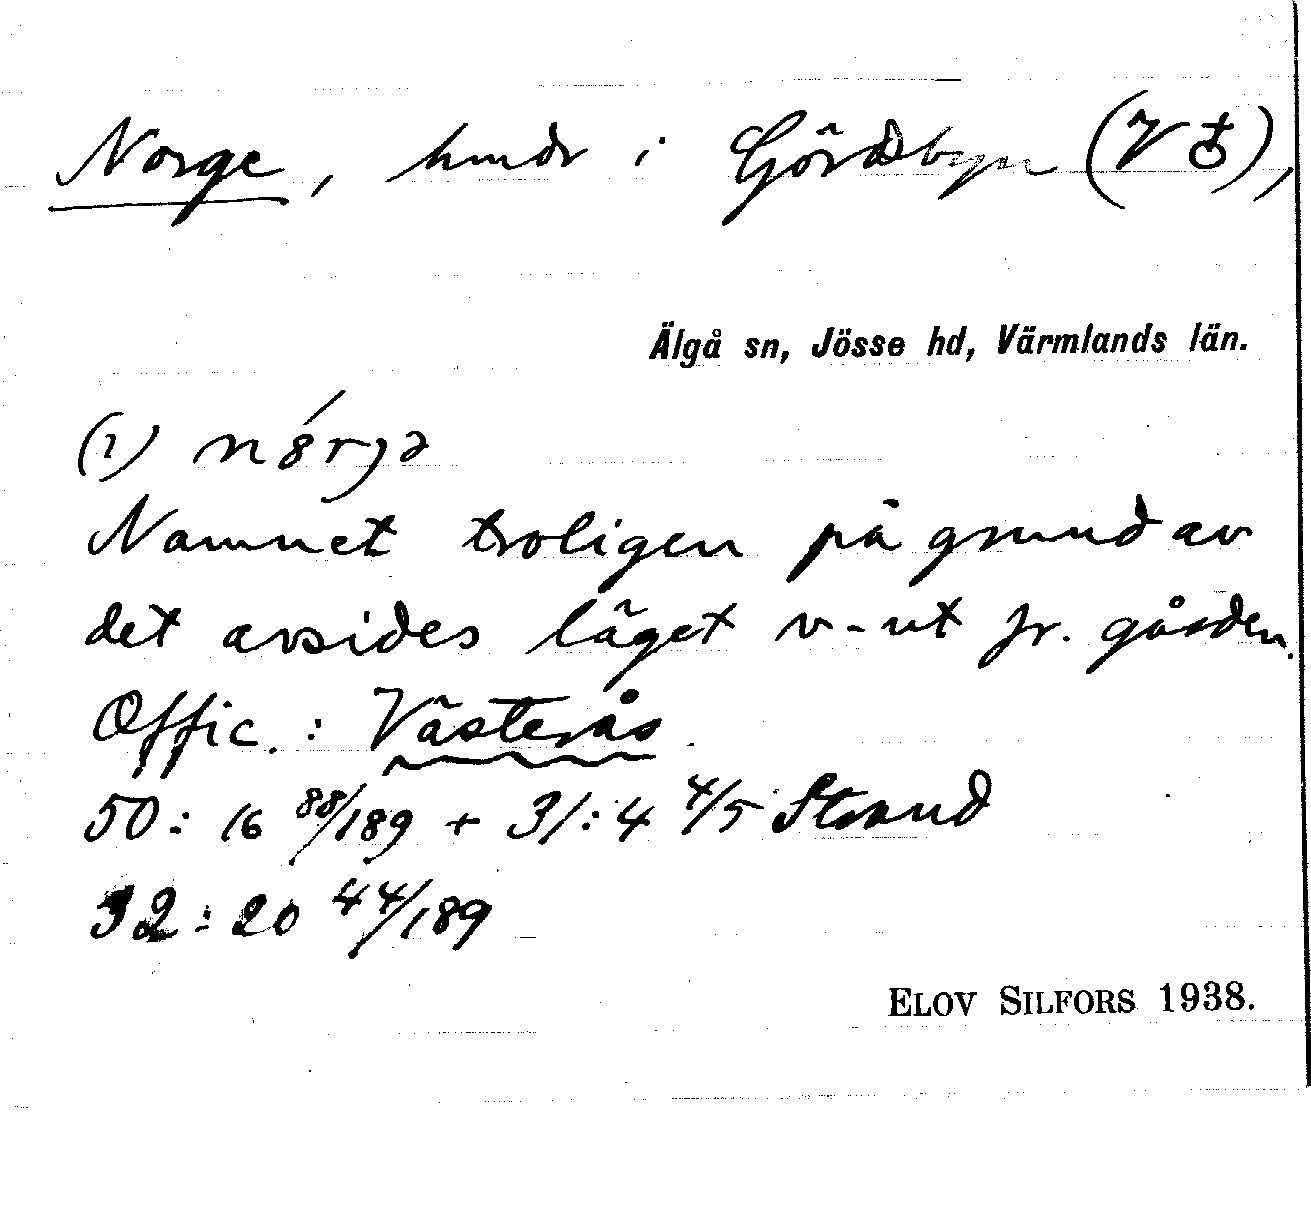 Norge, hmdr i Gördsbyn (V ♁),
Älgå sn, Jösse hd, Värmlands län.
(1) nȣ́rjə
Namnet troligen på grund av
det avsides läget v-ut fr. gården.
Offic.: Västerås
50:16 88/189 + 31:4 4/5 Strand
32:20 44/189
ELOV SILFORS 1938.